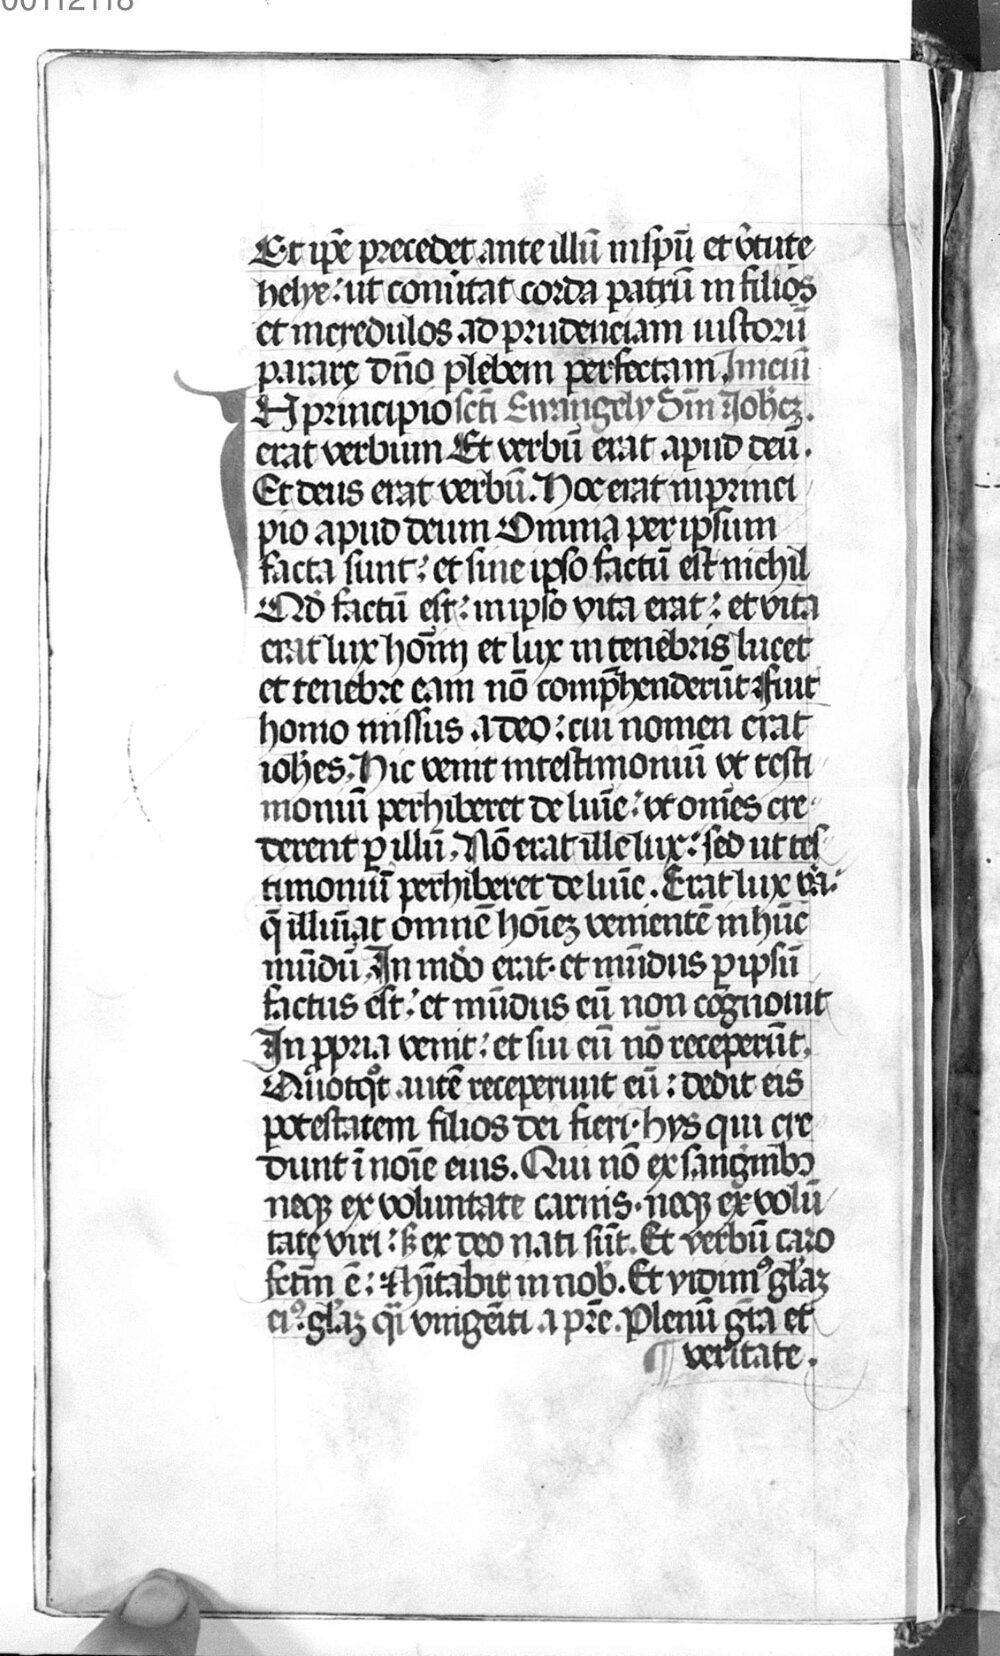 00112118
Et ip̄e precedet ante illū in sp̄u et v̓tute
helye: ut conu̓tat corda patrū in filios
et incredulos ad prudenciam iustorū
parare dn̄o plebem perfectam Iniciū
IN principio sc̄ti Ewangely Sm̄ Joh̄ez.
erat verbum Et verbū erat apud deū.
Et deus erat verbū. Hoc erat in princi
pio apud deum Omnia per ipsum
facta sunt: et sine ipso factū est nichil
Qd̓ factū est: in ipso vita erat: et vita
erat lux hōinj et lux in tenebris lucet
et tenebre eam nō comp̄henderūt Fuit
homo missus a deo: cui nomen erat
ioh̄es. Hic venit in testimoniū vt testi
moniū perhiberet de lūie: vt om̄es cre
derent ꝑ illū. Nō erat ille lux: sed ut tes
timoniū perhiberet de lūie. Erat lux v̓a:
q̄ illuīat omnē hōiez venientē in hūc
mūdū. In mdo erat. et mūdus ꝑ ipsū
factus est: et mūdus eū non cognouit
In ꝓpria venit: et sui eū nō receperūt.
Quotqͦt autē receperunt eū: dedit eis
potestatem filios dei fieri. hys qui cre
dunt ī nōie eius. Qui nō ex sanguinibꝫ
neqꝫ ex voluntate carnis. neqꝫ ex volū
tate viri: sꝫ ex deo nati sūt. Et verbū caro
fctm̄ ē: ⁊ hītabit in nob̓. Et vidimꝰ gl̓az
eiꝰ. gl̓az qͣi vnigēiti a pr̄e. Plenū gr̄a et
veritate.